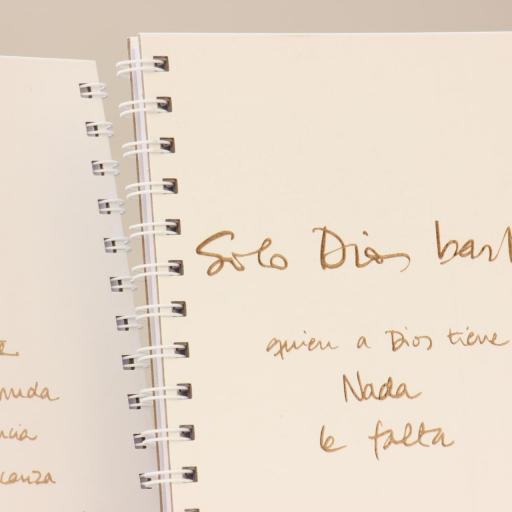 nuda
ncia
canza
Solo Dios bast
quien a Dios tiene
Nada
le falta